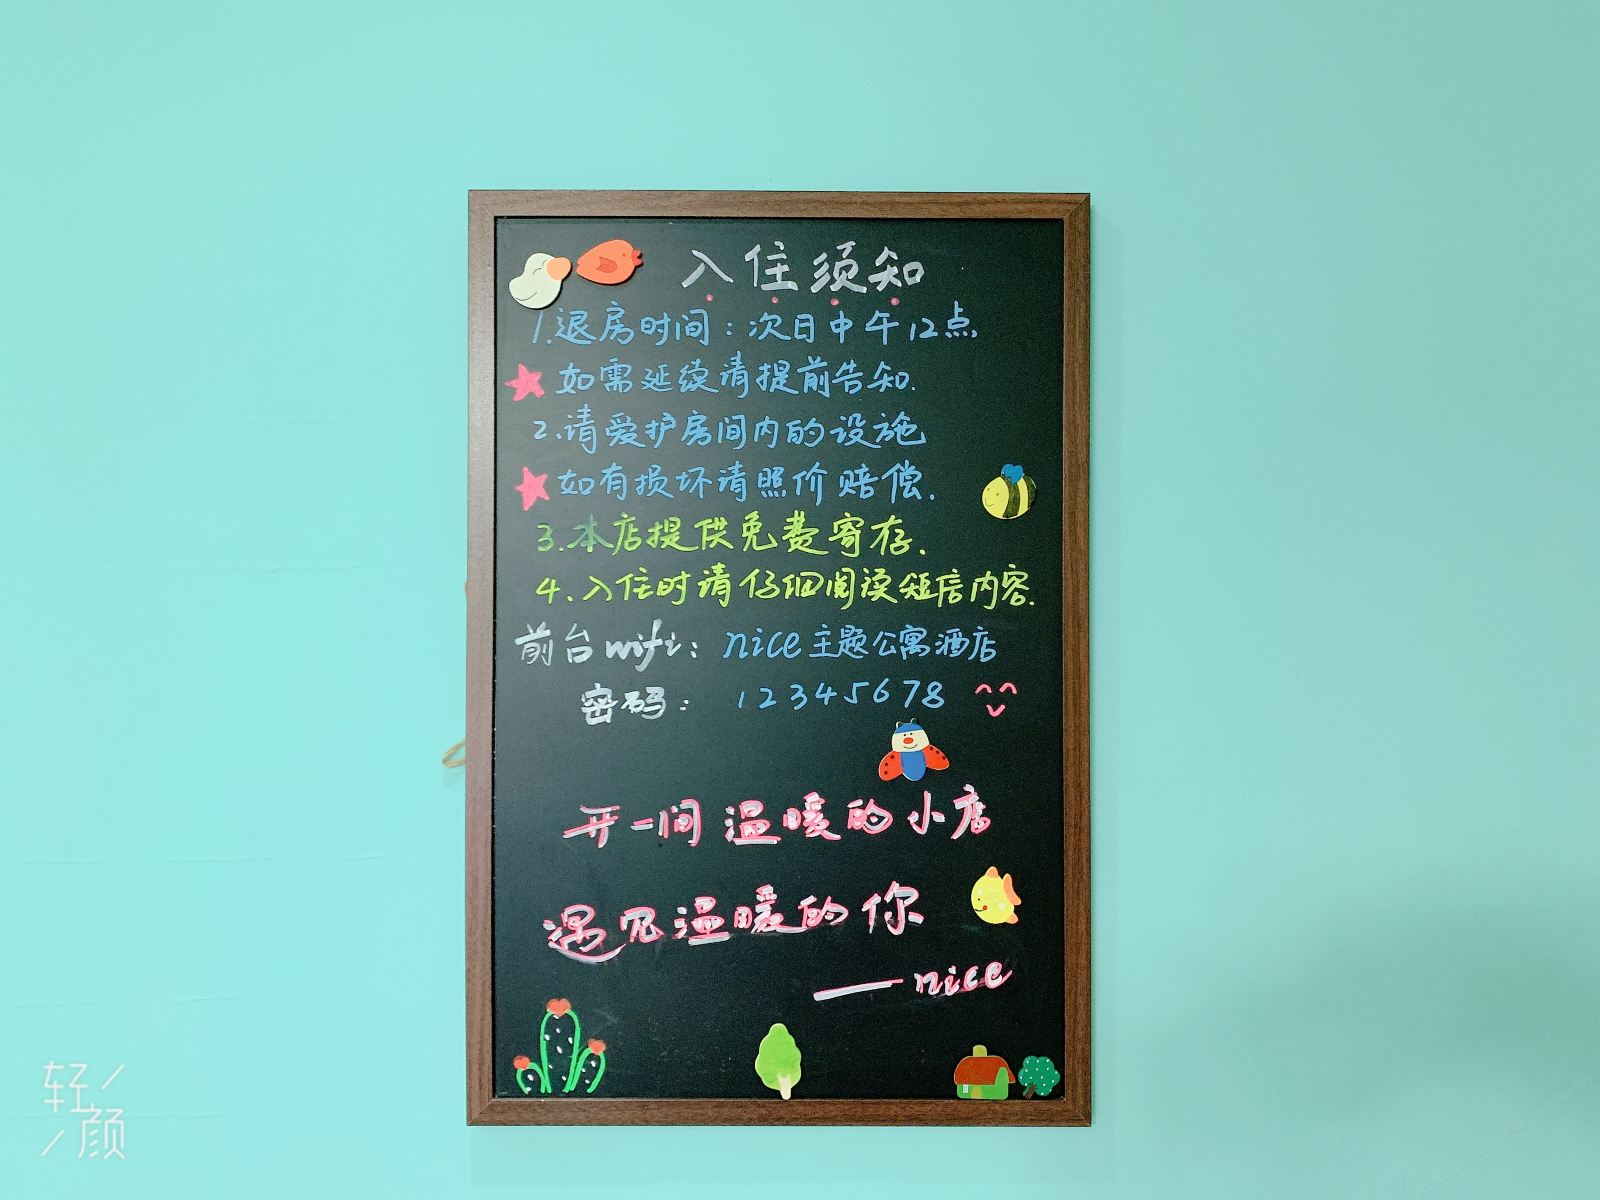 入住须知
1.退房时间：次日中午12点,
如需延续请提前告知.
2.请爱护房间内的设施
如有损坏请照价赔偿.
3.本店提供免费寄存.
4.入住时请仔细阅读短店内容.
前台wifi：nice主题公寓酒店
密码：12345678
开一间温暖的小店
遇见温暖的你
——nice
轻
颜